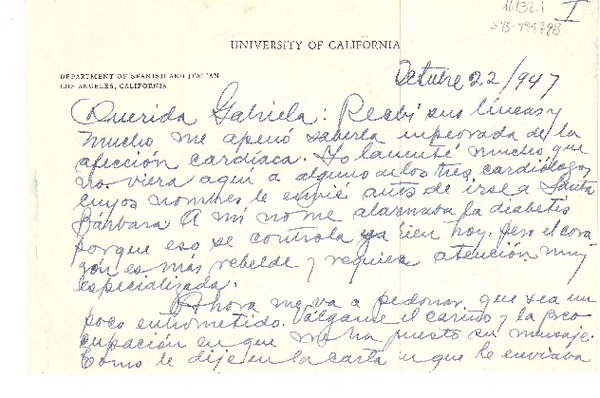 16132.1 I
SYS-994798
UNIVERSITY OF CALIFORNIA
DEPARTMENT OF SPANISH AND ITALIAN
LOS ANGELES, CALIFORNIA
Octubre 22/947
Querida Gabriela: Recibí sus líneas y
mucho me apenó saberla empeorada de la
afección cardíaca. Yo lamenté mucho que
no viera aquí a alguno de los tres cardiólogos
cuyos nombres le envié antes de irse a Santa
Bárbara. A mí no me alarmaba la diabetis
porque eso se controla ya bien hoy. Pero el cora-
zón es más rebelde y requiere atención muy
especializada.
Ahora me va a perdonar que sea un
poco entrometido. Válgame el cariño y la preo-
cupación en que me ha puesto su mensaje.
Como le dije en la carta en que le enviaba